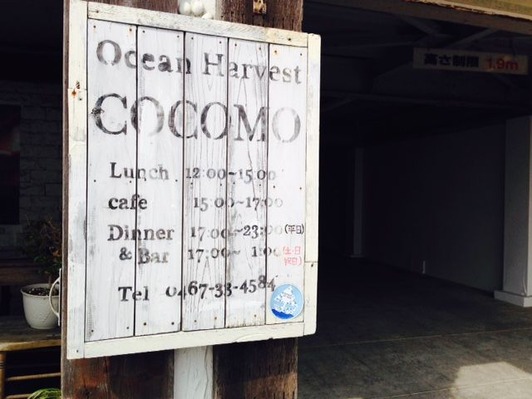 Ocean Harvest
COCOMO
Lunch 12:00~15:00
cafe 15:00~17:00
Dinner 17:00~23:00 (平日)
& Bar 17:00~ 1:00
Tel 0467-33-4584
高さ制限 1.9m